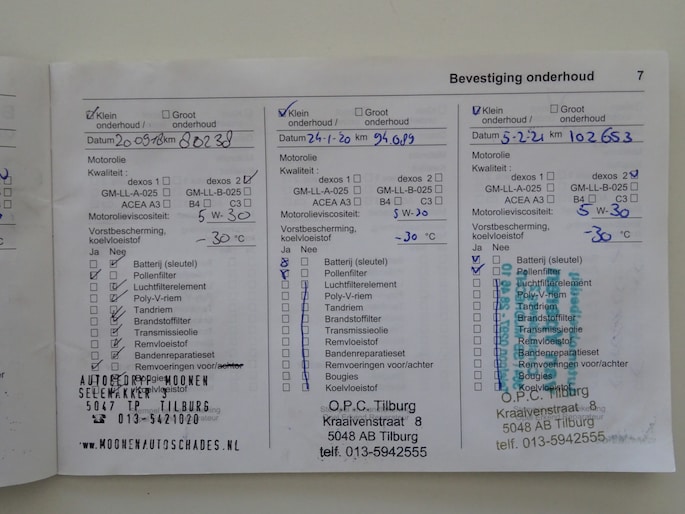 Bevestiging onderhoud 7
Klein onderhoud / Groot onderhoud
Datum 20-09-18 km 80238
Motorolie
Kwaliteit :
dexos 1 dexos 2
GM-LL-A-025 GM-LL-B-025
ACEA A3 B4 C3
Motorolieviscositeit: 5 W-30
Vorstbescherming,
koelvloeistof -30 °C
Ja Nee
Batterij (sleutel)
Pollenfilter
Luchtfilterelement
Poly-V-riem
Tandriem
Brandstoffilter
Transmissieolie
Remvloeistof
Bandenreparatieset
Remvoeringen voor/achter
Bougies
Koelvloeistof
AUTOBEDRIJF MOONEN
SELENAKKER 3
5047 TP TILBURG
☎ 013-5421020
www.MOONENAUTOSCHADES.NL
Klein onderhoud / Groot onderhoud
Datum 24-1-20 km 94.089
Motorolie
Kwaliteit :
dexos 1 dexos 2
GM-LL-A-025 GM-LL-B-025
ACEA A3 B4 C3
Motorolieviscositeit: 5 W-30
Vorstbescherming,
koelvloeistof -30 °C
Ja Nee
Batterij (sleutel)
Pollenfilter
Luchtfilterelement
Poly-V-riem
Tandriem
Brandstoffilter
Transmissieolie
Remvloeistof
Bandenreparatieset
Remvoeringen voor/achter
Bougies
Koelvloeistof
O.P.C. Tilburg
Kraaivenstraat 8
5048 AB Tilburg
telf. 013-5942555
Klein onderhoud / Groot onderhoud
Datum 5-2-21 km 102653
Motorolie
Kwaliteit :
dexos 1 dexos 2
GM-LL-A-025 GM-LL-B-025
ACEA A3 B4 C3
Motorolieviscositeit: 5 W-30
Vorstbescherming,
koelvloeistof -30 °C
Ja Nee
Batterij (sleutel)
Pollenfilter
Luchtfilterelement
Poly-V-riem
Tandriem
Brandstoffilter
Transmissieolie
Remvloeistof
Bandenreparatieset
Remvoeringen voor/achter
Bougies
Koelvloeistof
O.P.C. Tilburg
Kraaivenstraat 8
5048 AB Tilburg
telf. 013-5942555